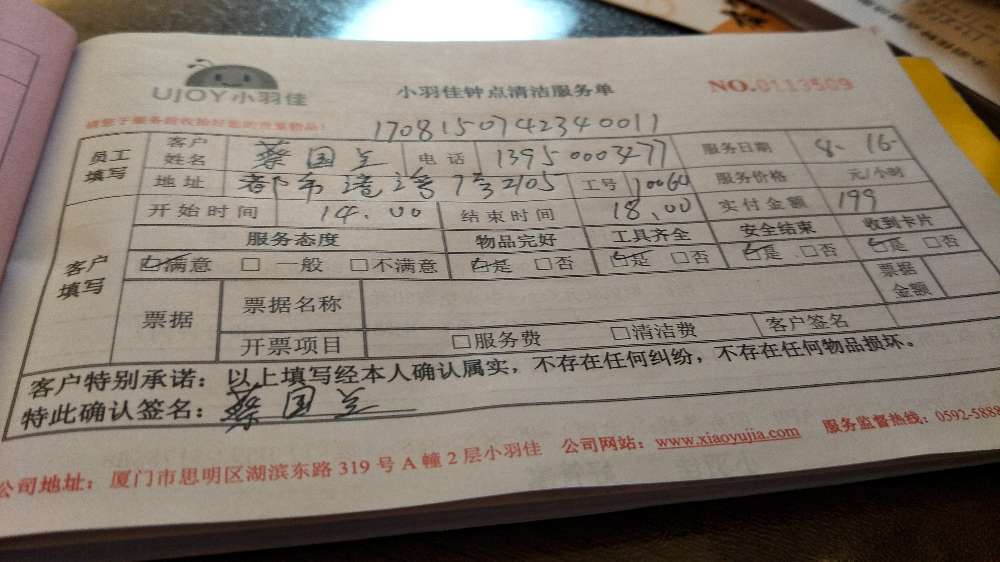 UJOY小羽佳 小羽佳钟点清洁服务单 NO.0113509
请您于服务前收拾好您的贵重物品!
17081507423400​11
员工填写 客户姓名 蔡国兰 电话 13950003477 服务日期 8-16-
地址 都市港湾7号2105 工号 10060 服务价格 元/小时
客户填写 开始时间 14.00 结束时间 18.00 实付金额 199
服务态度 物品完好 工具齐全 安全结束 收到卡片
满意 □ 一般 □不满意 是 □否 是 □否 是 □否 是 □否
票据 票据名称 票据金额
开票项目 □服务费 □清洁费 客户签名
客户特别承诺:以上填写经本人确认属实,不存在任何纠纷,不存在任何物品损坏。
特此确认签名:蔡国兰
公司地址:厦门市思明区湖滨东路 319 号 A 幢 2 层小羽佳 公司网站:www.xiaoyujia.com 服务监督热线:0592-5888